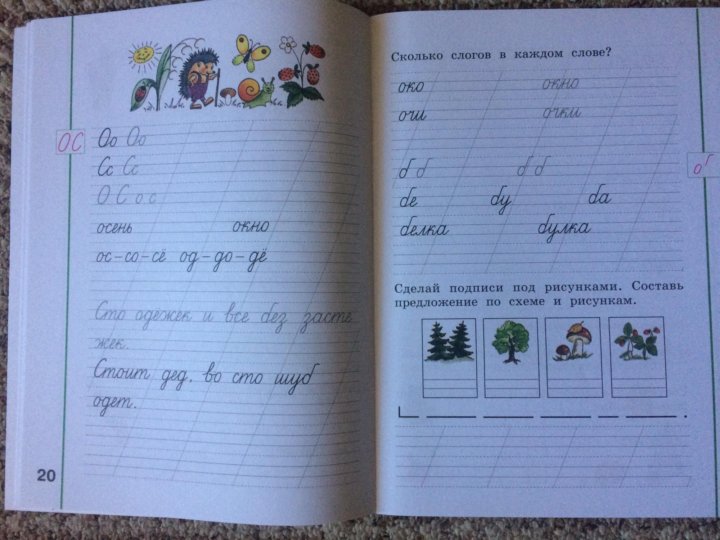 ОС
Оо Оо
Сс Сс
О С о с
осень окно
ос – со – сё од – до – дё
Сто одёжек и все без засте
жек.
Стоит дед, во сто шуб
одет.
20
Сколько слогов в каждом слове?
око окно
очи очки
б б б б
об
бе бу ба
белка булка
Сделай подписи под рисунками. Составь
предложение по схеме и рисункам.